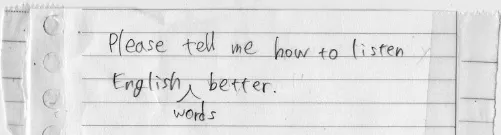 Please tell me how to listen
English words better.